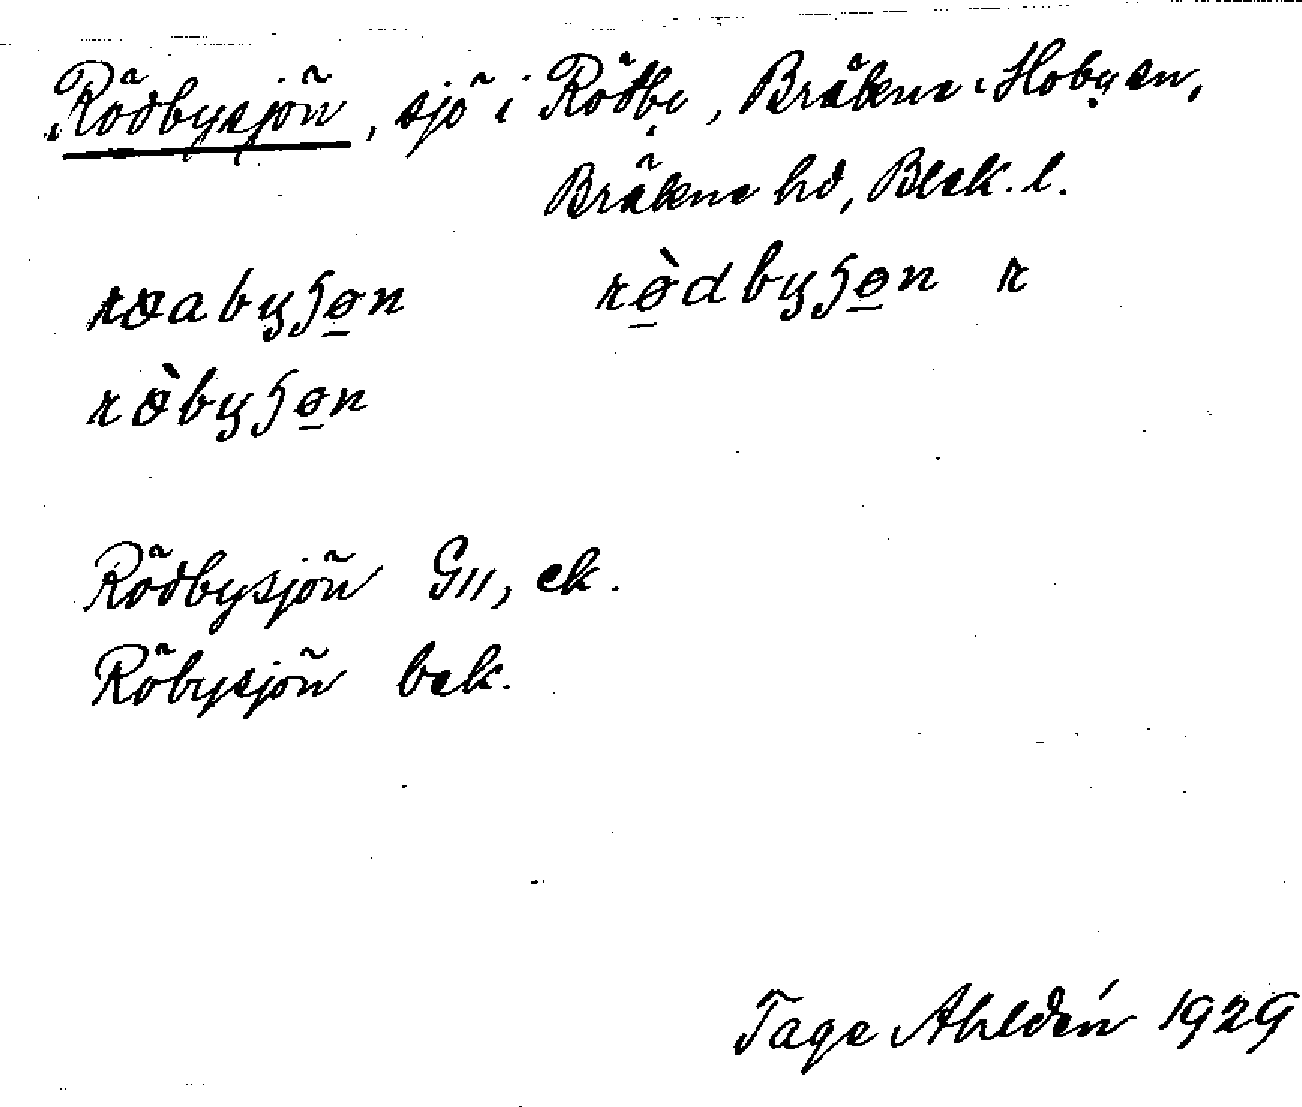 Rödbysjön, sjö i Rödby, Bräkne-Hoby sn,
Bräkne hd, Blek. l.
röabyʃøn rø̀dbyʃøn r
rö̀byʃøn
Rödbysjön G11, ek.
Röbysjön bek.
Tage Ahldén 1929